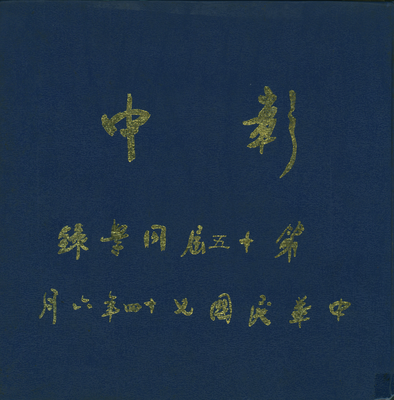 彰中
第十五屆同學錄
中華民國七十四年六月